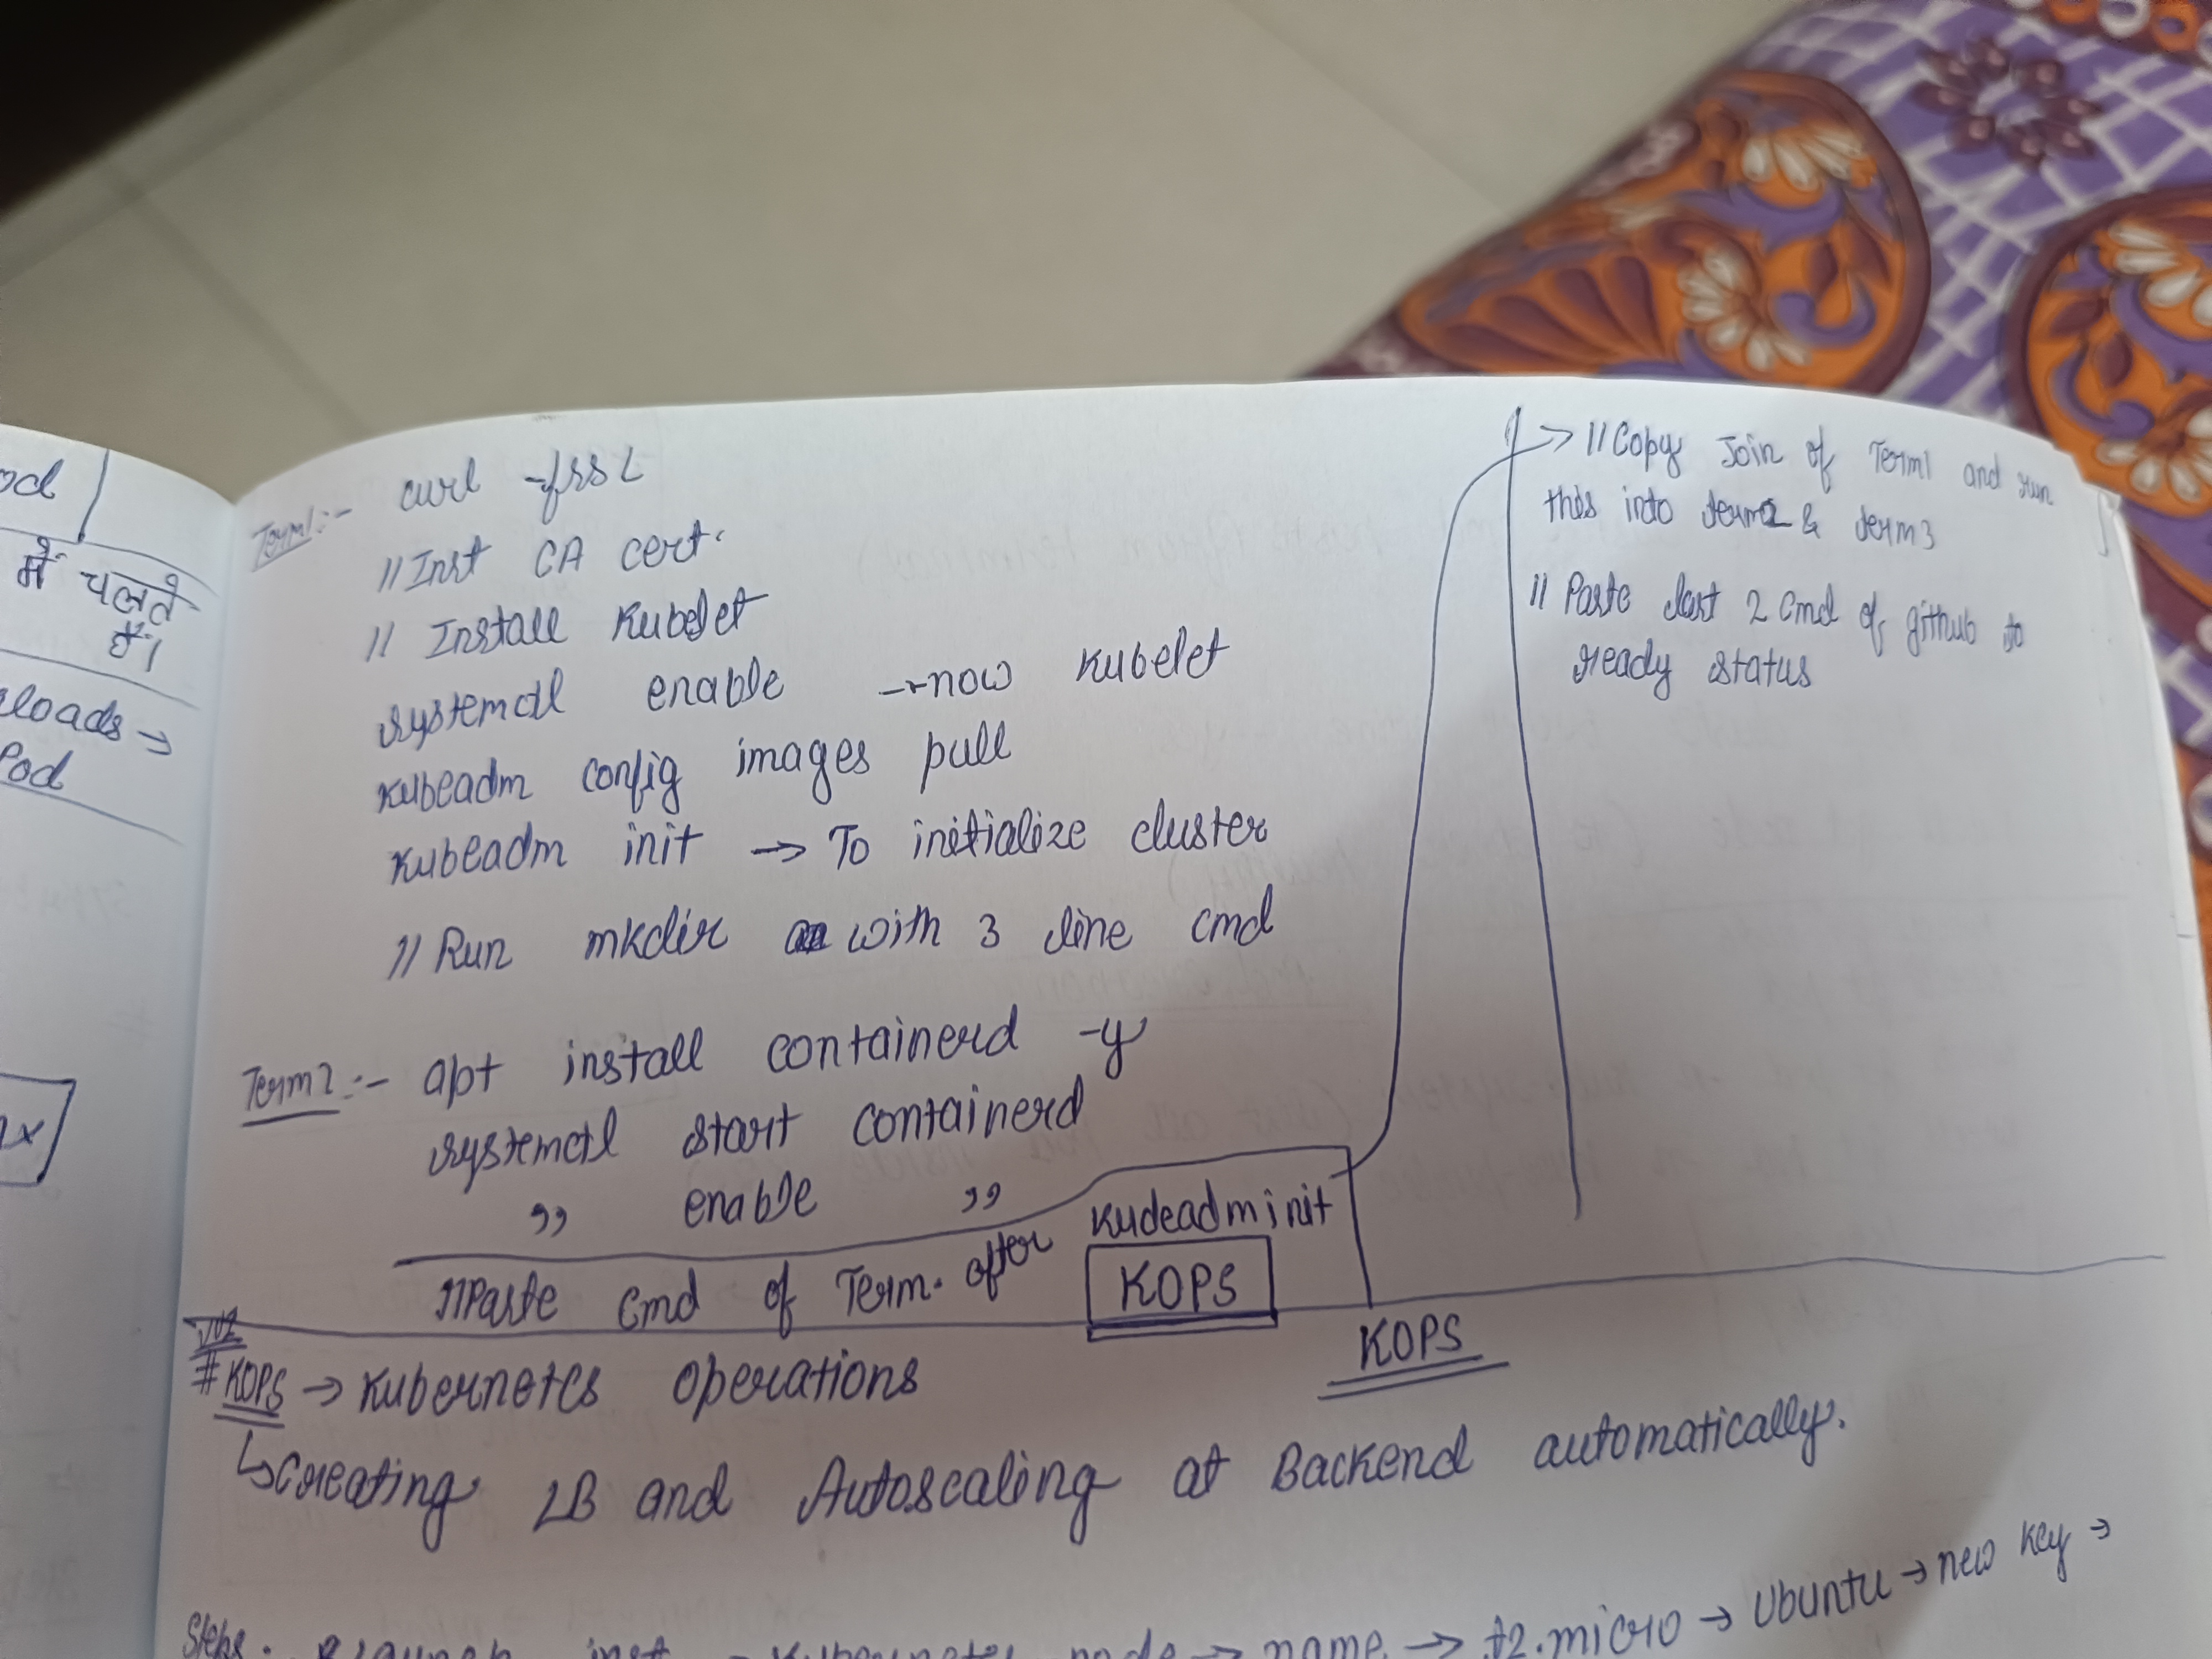 od
में चलते
हैं।
loads →
Pod
Term1:- curl -fssL
// Inst CA cert.
// Install Kubelet
systemctl enable --now kubelet
kubeadm config images pull
kubeadm init → To initialize cluster
// Run mkdir with 3 line cmd
Term2:- apt install containerd -y
systemctl start containerd
,, enable ,,
// Paste cmd of Term. after kudeadm init
KOPS
→ // Copy Join of Term1 and run
this into term2 & term3
// Paste last 2 cmd of github to
ready status
KOPS
# KOPS → Kubernetes operations
↳ Creating LB and Autoscaling at Backend automatically.
Steps. inst → name → t2.micro → Ubuntu → new key →